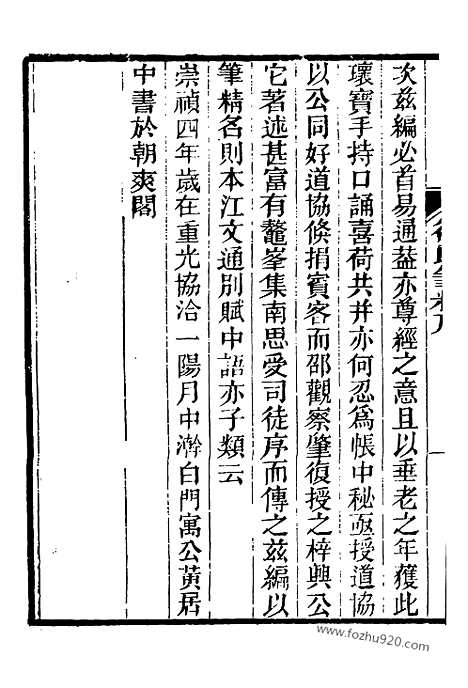 次兹編必首易通葢亦尊經之意且以垂老之年獲此
瓌寶手持口誦喜荷共幷亦何忍爲帳中秘亟授道協
以公同好道協倐捐賓客而邵觀察肇復授之梓興公
它著述甚富有鼇峯集南思受司徒序而傳之兹編以
筆精名則本江文通別賦中語亦子類云
崇禎四年歲在重光協洽一陽月中澣白門寓公黃居
中書於朝爽閣
www.fozhu920.com